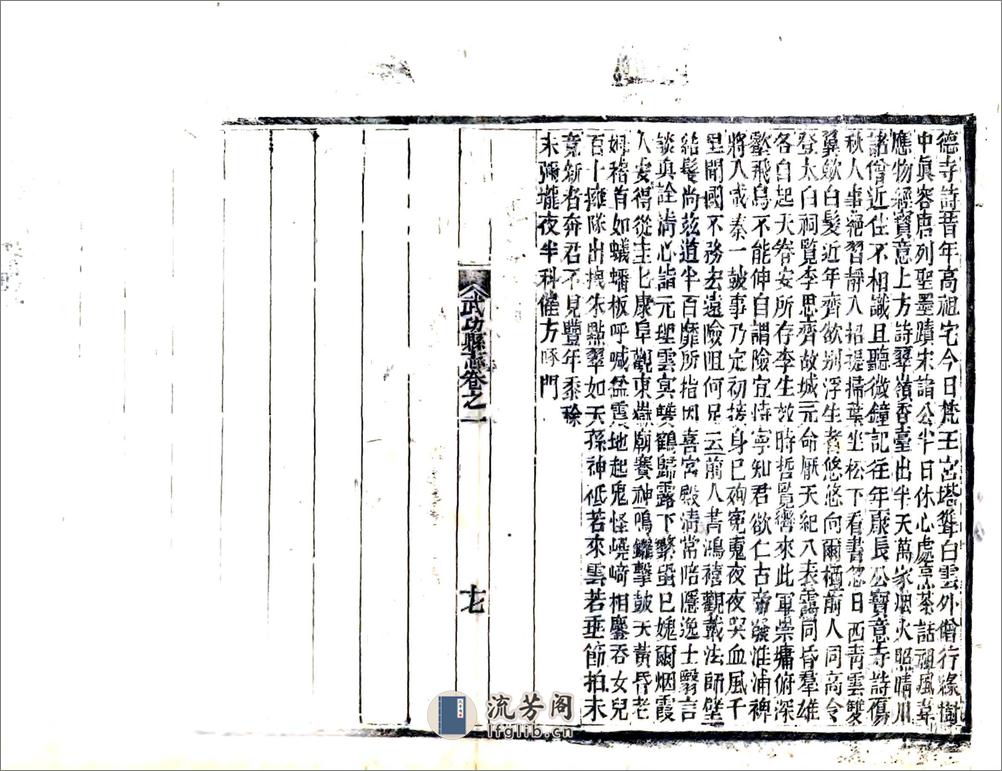 德寺詩昔年高祖宅今日梵王宮塔聳白雲外僧行綠樹
中眞容唐列聖墨蹟宋諸公半日休心處烹茶話祖風韋
應物經寳意上方詩翠嶺香臺出半天萬家烟火照晴川
諸僧近住不相識且聽微鐘記往年康長公寳意寺詩傷
秋人事絶習靜入招提掃葉坐松下看書忽日西靑雲雙
翼歛白髮近年齊欲別浮生者悠悠向爾栖前人同高令
登太白祠覽李思齊故城元命厭天紀八表靄同昏羣雄
各自起天眷安所存李生故時哲覽轡來此軍崇墉俯深
壑飛鳥不能伸自謂險宜恃寧知君欲仁古帝發淮浦裨
將入咸秦一鼓事乃定初援身已殉寃䰟夜夜哭血風千
里聞國不務去遠險阻何足云前人書鴻禧觀戴法師壁
結髮尚玆道半百靡所指因喜宮殿淸常陪隱逸士翳言
談眞詮淸心詣元理雲㝠喚鶴歸露下黎鋤已媿爾烟霞
人安得從玉匕康阜觀東嶽廟賽神鳴鑼擊鼓天黃昏老
姆稽首如蟻蟠板呼喊盆震地起鬼怪嶢崎相鏖吞女兒
百十擁隊出抛朱㸃翠如天孫神衹若來雲若垂節拍未
竟新者奔君不見豐年黍稌
末彌壠夜半科催方啄門
武功縣志卷之一
十七
流芳阁
lfglib.cn